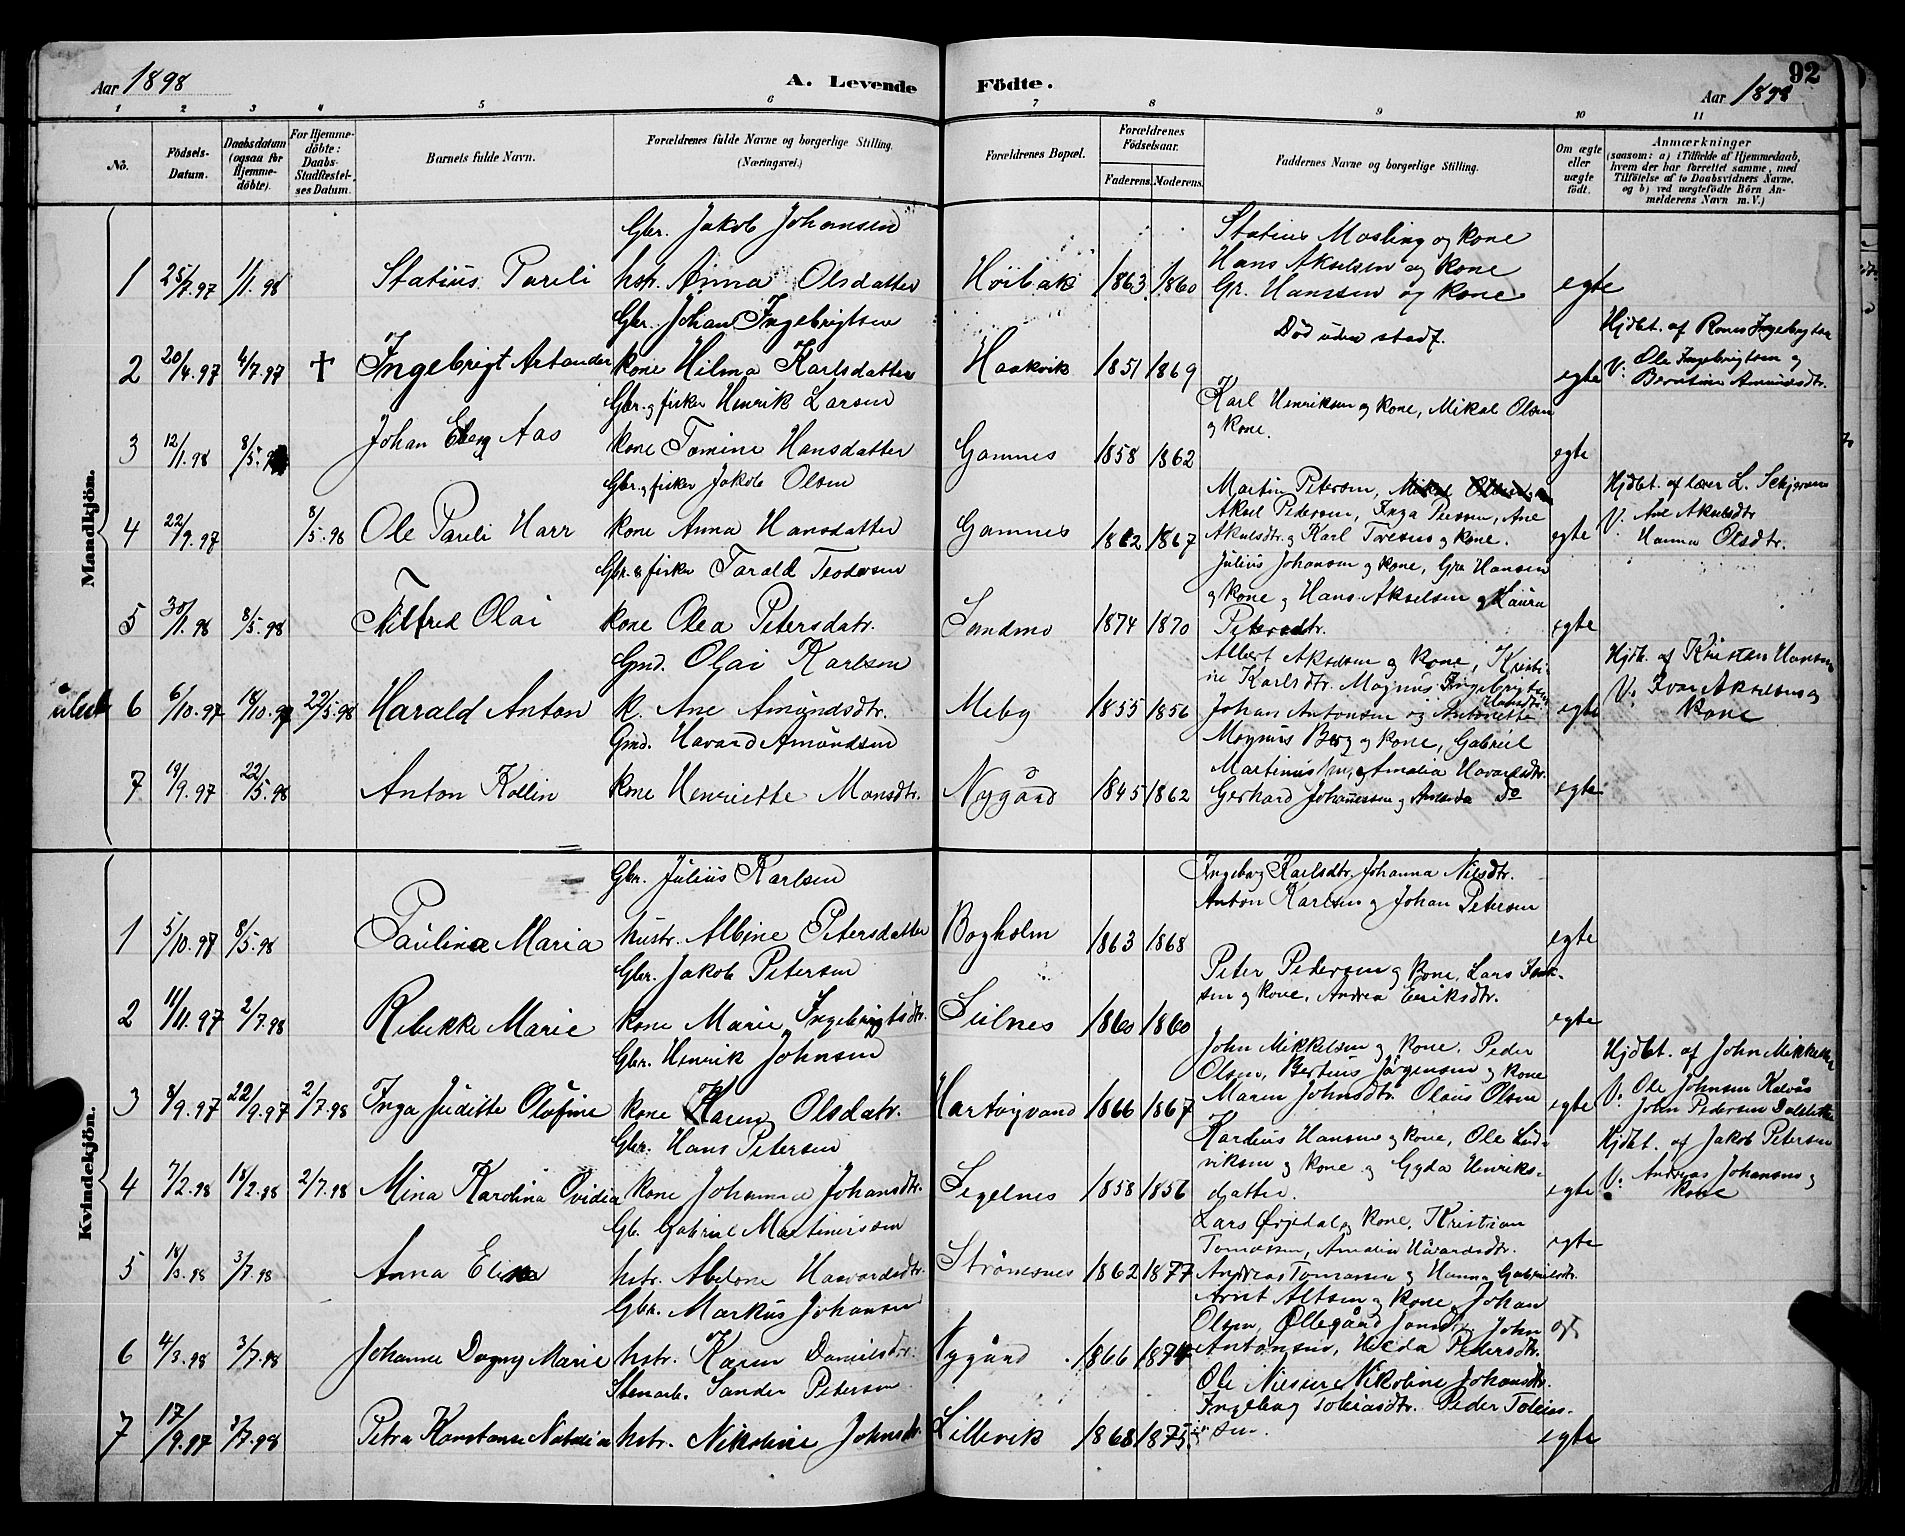 Aar 1898
A. Levende Födte.
92
Aar 1898
1 2 3 4 5 6 7 8 9 10 11
No.
Födsels-Datum.
Daabsdatum (ogsaa for Hjemme-döbte).
For Hjemme-döbte: Daabs-Stadfestel-ses Datum.
Barnets fulde Navn.
Forældrenes fulde Navne og borgerlige Stilling. (Næringsvei.)
Forældrenes Bopæl.
Forældrenes Födselsaar.
Faderens. Moderens.
Faddernes Navne og borgerlige Stilling.
Om ægte eller uægte födt.
Anmærkninger
(saasom: a) i Tilfælde af Hjemmedaab, hvem der har forrettet samme, med Tilföielse af to Daabsvidners Navne, og b) ved uægtefödte Börn An-melderens Navn m. V.)
Mandkjön.
Gbr. Jakob Johansen Statius Mosling og kone
Hans Akselsen og kone
1 25/7.97 1/1.98 Statius Pareli hstr. Anna Olsdatter Höibak 1863 1860 Gr. Hanssen og kone egte
Gbr. Johan Ingebrigtsen Död uden stadf. Hjdbt. af Ingebrigtsen
2 20/4.97 4/7.97 † Ingebrigt kone Hilma Karlsdatter Haakvik 1851 1869 egte V: Ole Ingebrigtsen og
Amundsdtr.
Gbr. og fisker Henrik Larsen Karl Henriksen og kone, Mikal Olsen
og kone.
3 12/1.98 8/5. Johan Aas kone Tomine Hansdatter Gamnes 1858 1862 egte
Gbr. og fisker Jakob Olsen Martin Petersen, Hjdbt. af lærer L.
Aksel Pedersen, Inga Ane V: Ane Akselsdtr
4 22/9.97 8/5.98 Ole Pareli Harr kone Anna Hansdatter Gamnes 1862 1867 Akselsdtr. og Karl og kone. egte Hanna Olsdtr.
Gbr. & fisker Tarald Teodorsen Julius Johansen og kone, Hansen
og kone og Hans Akselsen og Laura
5 30/1.98 8/5.98 Olai kone Olea Petersdatr. Sandmo 1874 1870 Petersdtr. egte
Gmd. Olai Karlsen Albert Akselsen og kone, Kristi- Hjdb. af Kristen Hansen
ne Karlsdtr. Magnus Ingebrigtsen
6 6/10.97 18/10.97 22/5.98 Harald Anton k. Ane Amundsdtr. Meby 1855 1856 Johan Antonsen og Antonette egte V: Ivar Akselsen og
kone
Gmd. Havard Amundsen Magnus Berg og kone, Gabriel
Martinussen og Amalia Havardsdtr.
7 19/9.97 22/5.98 Anton Kollin kone Henriette Monsdtr. Nygård 1845 1862 Gerhard Johannessen og Do egte
Kvindekjön.
Gbr. Julius Karlsen Ingeborg Karlsdtr. Johanna Nilsdtr.
Anton Karlsen og Johan Petersen
1 5/10.97 8/5.98 Paulina Maria hustr. Albine Petersdatter Bogholm 1863 1868 egte
Gbr. Jakob Petersen Peter Pedersen og kone, Lars
sen og kone, Andrea Eriksdtr.
2 11/11.97 2/7.98 Rebekke Marie kone Marie Ingebrigtsdtr. 1860 1860 egte
Gbr. Henrik Johnsen John Mikkelsen og kone. Peder Hjdbt. af John Mikkelsen
Olsen, Bertius Jörgensen og kone V: Ole Johnsen
3 8/9.97 22/9.97 2/7.98 Inga Juditte Olufine kone Karen Olsdatr. Hartvigvand 1866 1867 Maren Johnsdtr. Olaus Olsen egte John Pedersen
Gbr. Hans Petersen Hansen og kone, Ole Lud- Hjdbt. af Jakob Petersen
viksen og kone og Gyda Henriks-
4 7/2.98 18/2.98 2/7.98 Mina Karolina Ovidia kone Johanna Johansdtr. Segelnes 1858 1856 datter. egte V: Andreas Johansen og
kone
Gb. Gabriel Martinussen Lars og kone, Kristian
Tomassen, Amalia Håvardsdtr.
5 18/3.98 3/7.98 Anna hstr. Abelone Haavardsdtr. Strömsnes 1862 1877 Andreas Tomassen og Hanna Gabrielsdtr. egte
Gbr. Markus Johansen Arnt Altsen og kone, Johan
Olsen, Ollegård John
6 4/3.98 3/7.98 Johanne Dagny Marie hstr. Karen Danielsdtr. Nygård 1866 1874 Antonsen, Pedersdtr.
Stenarb. Sander Petersen Ole Nikoline Johansdtr.
Ingeborg Tobiasdtr. Peder Tobias-
7 17/9.97 3/7.98 Petra Konstanse Natalia hstr. Nikoline Johnsdtr. Lillevik 1868 1875 sen. egte